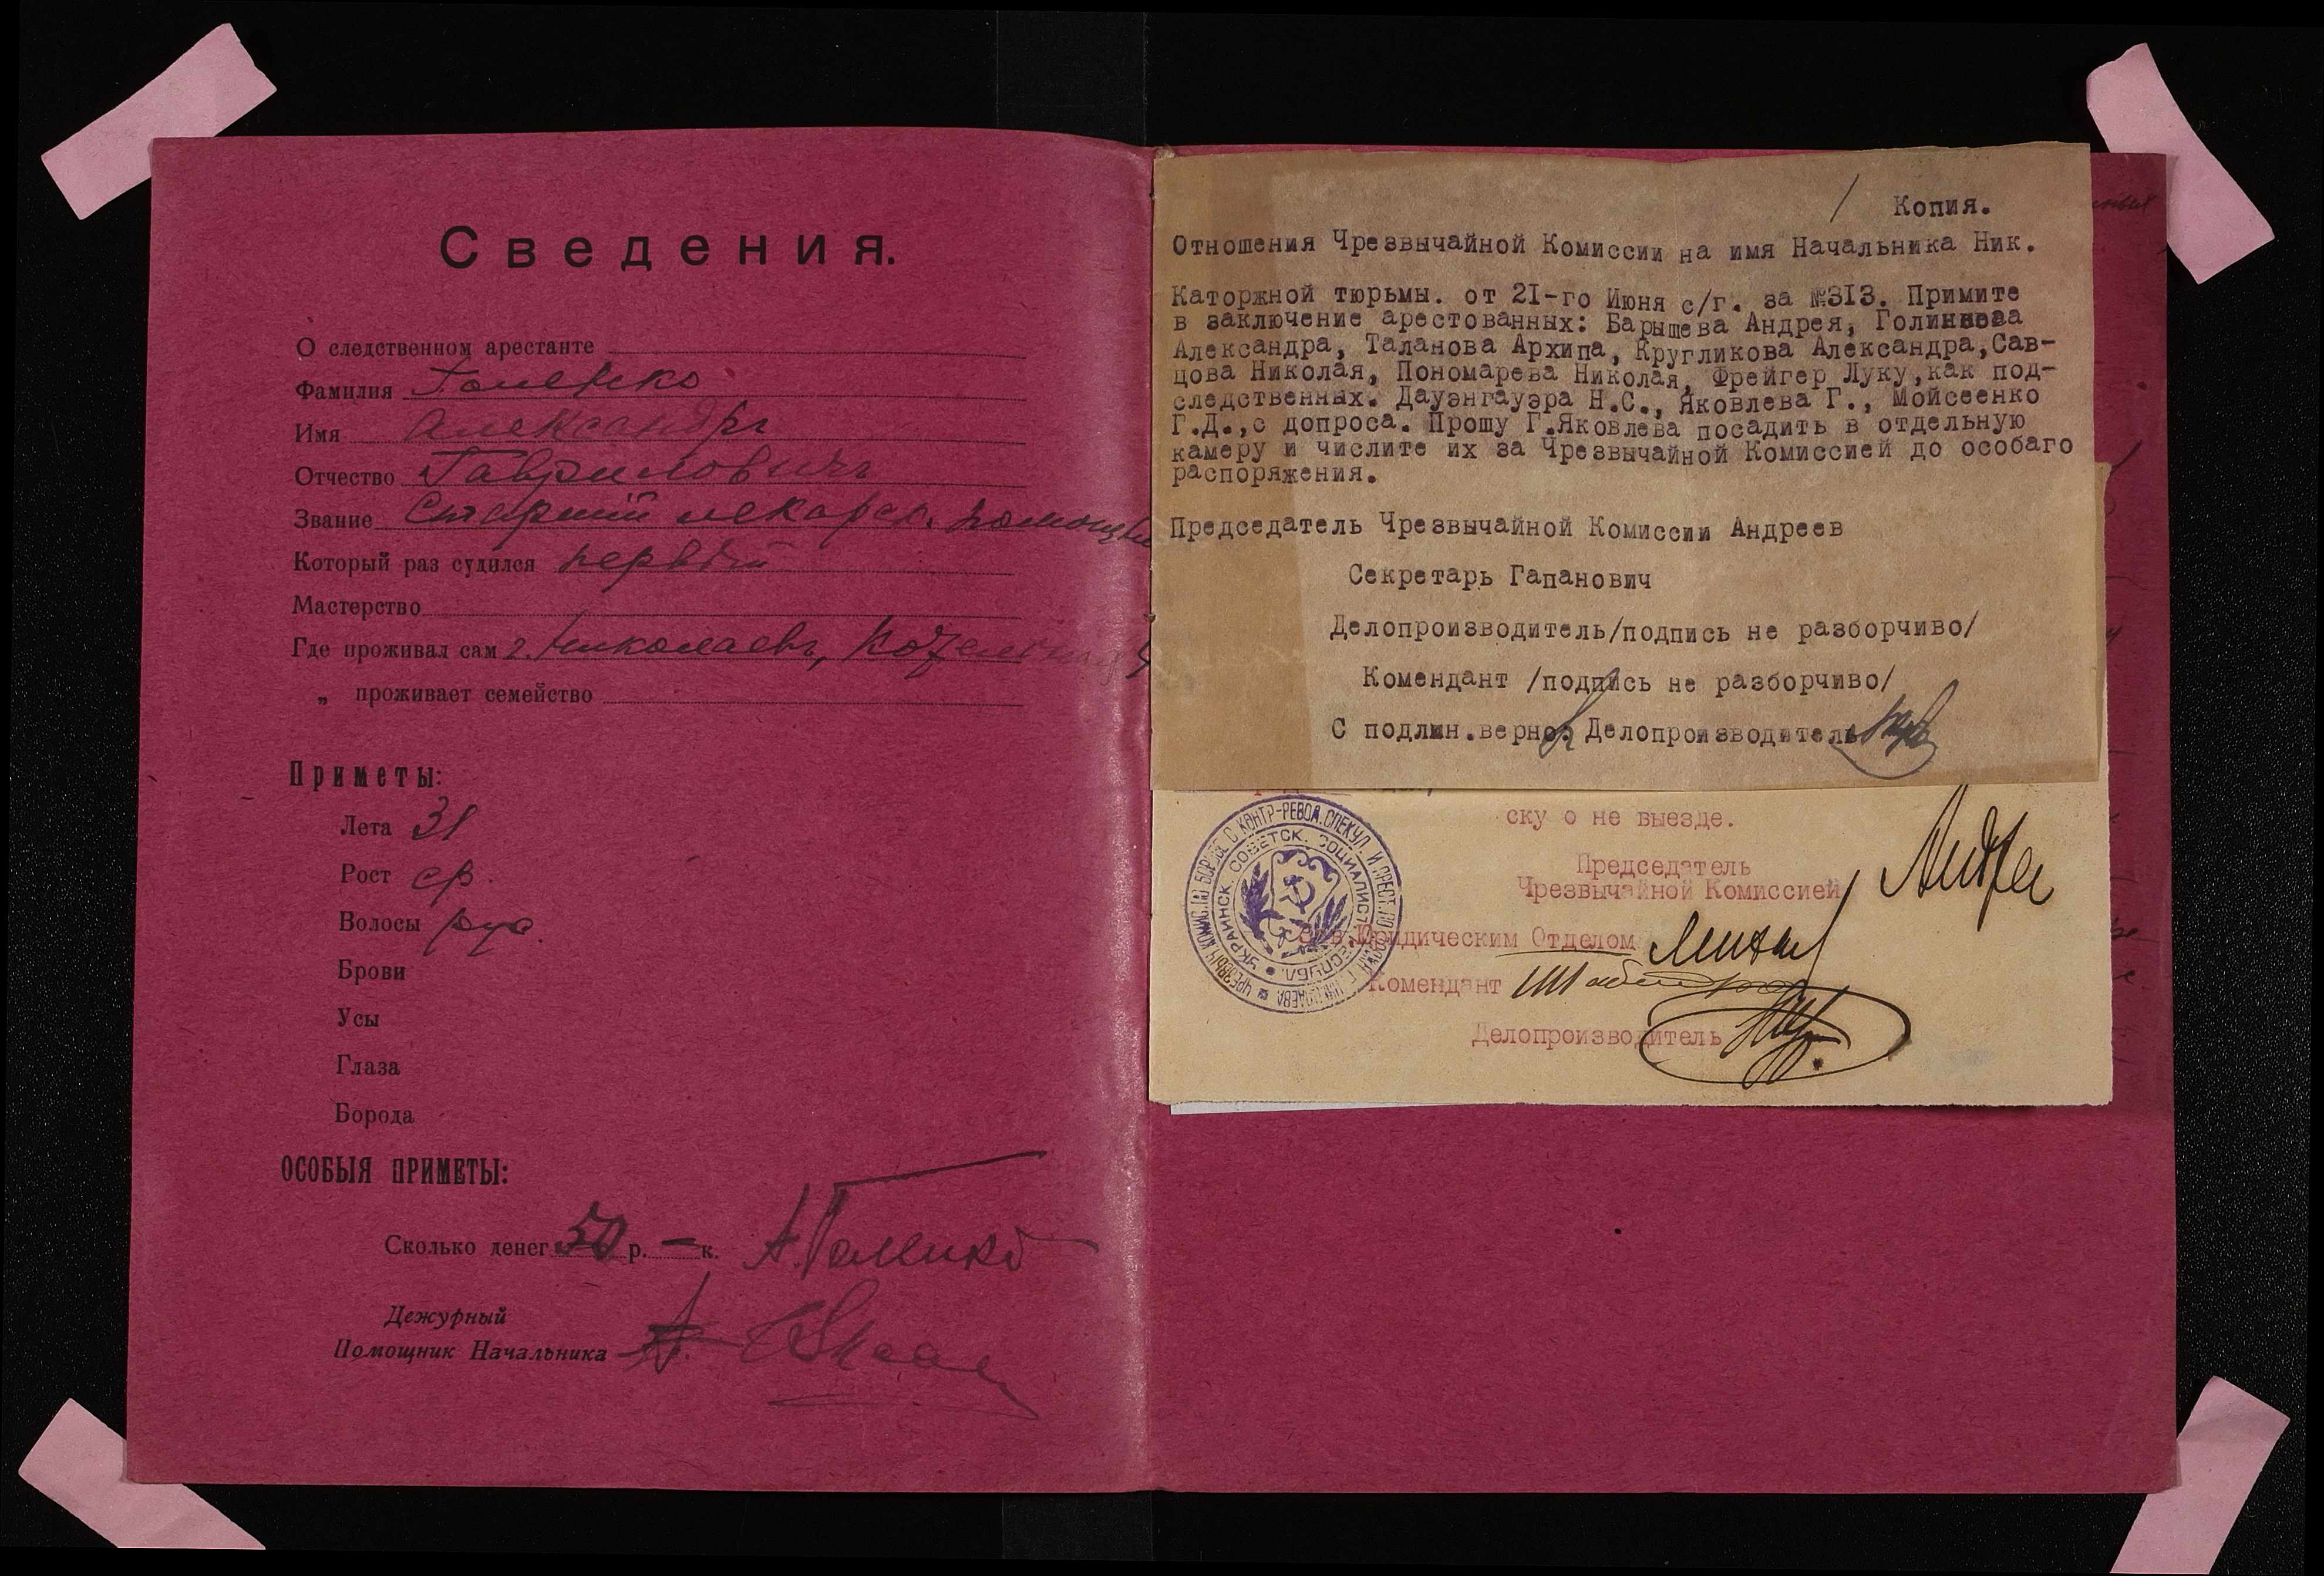 Сведения.
О следственном арестанте
Фамилия
Имя Александръ
Отчество Гавриловичъ
Звание Старший лекарск. помощн
Который раз судился первый
Мастерство
Где проживал сам г. Николаевъ,
„ проживает семейство
Приметы:
Лета 31
Рост ср.
Волосы рус.
Брови
Усы
Глаза
Борода
ОСОБЫЯ ПРИМЕТЫ:
Сколько денег 50 р. — к.
Дежурный
Помощник Начальника
Копия.
Отношения Чрезвычайной Комиссии на имя Начальника Ник.
Каторжной тюрьмы. от 21-го Июня с/г. за №313. Примите
в заключение арестованных: Барышева Андрея,
Александра, Таланова Архипа, Кругликова Александра,Сав-
цова Николая, Пономарева Николая, Фрейгер Луку,как под-
следственных. Дауэнгауэра Н.С., Яковлева Г., Мойсеенко
Г.Д.,с допроса. Прошу Г.Яковлева посадить в отдельную
камеру и числите их за Чрезвычайной Комиссией до особаго
распоряжения.
Председатель Чрезвычайной Комиссии Андреев
Секретарь Гапанович
Делопроизводитель/подпись не разборчиво/
Комендант /подпись не разборчиво/
С подлин.верно: Делопроизводитель
ску о не выезде.
Председатель
Чрезвычайной Комиссией
Юридическим Отделом
Комендант
Делопроизводитель
УКРАИНСК. СОВЕТСК. СОЦИАЛИСТ. РЕСПУБЛ.